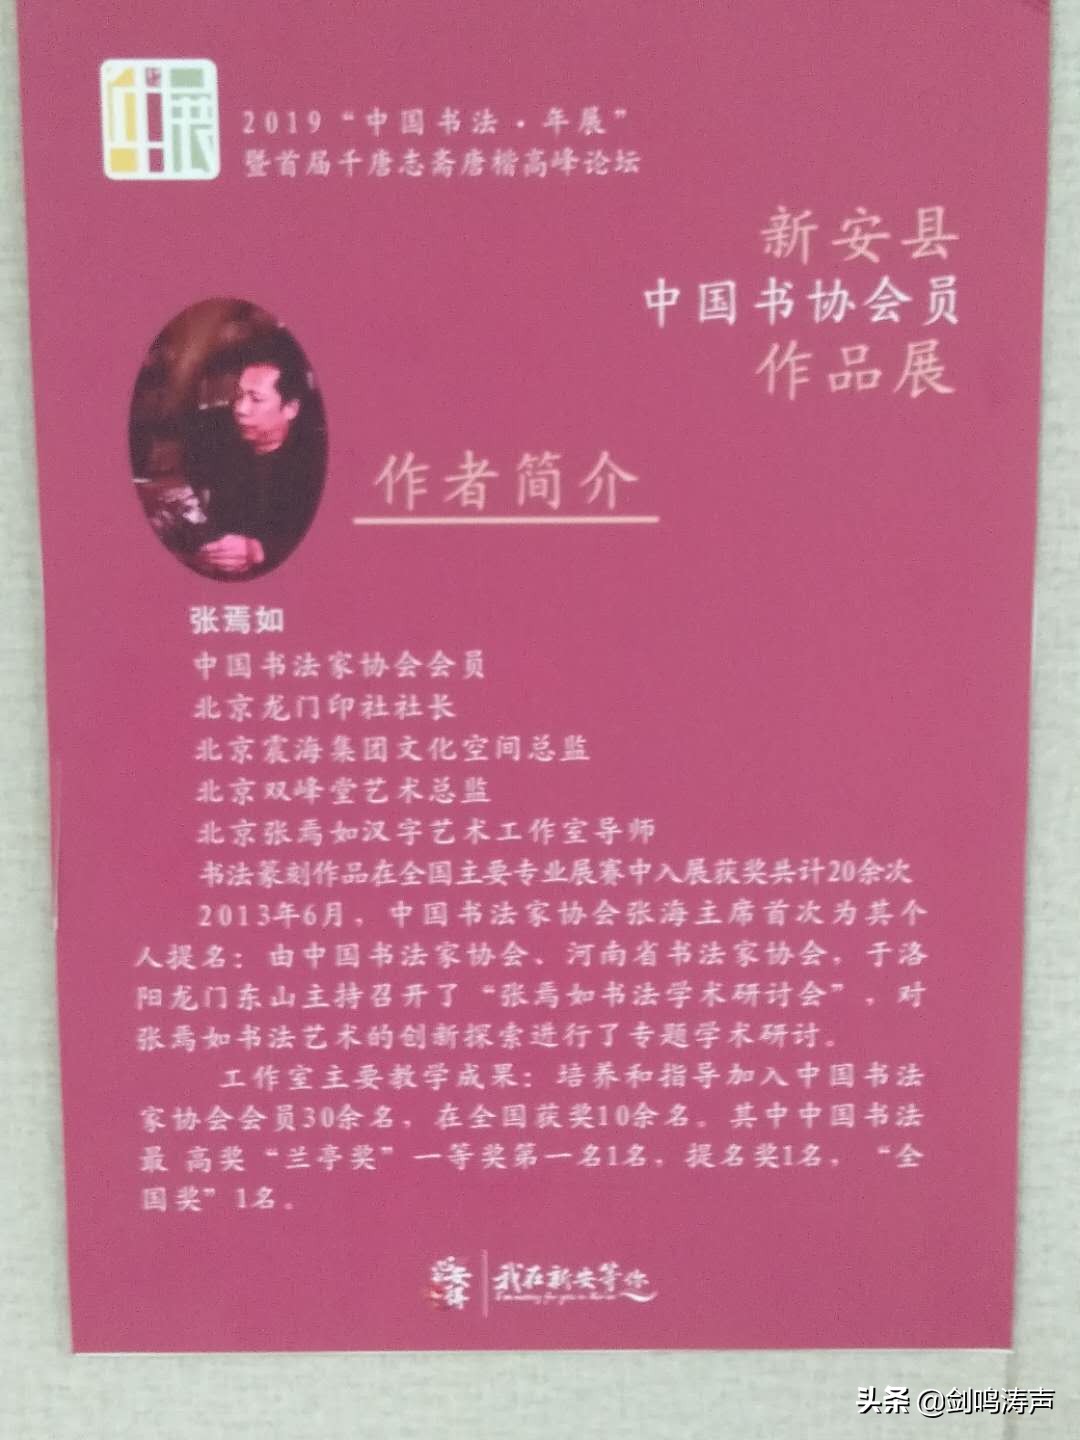 年展
2019“中国书法·年展”
暨首届千唐志斋唐楷高峰论坛
新安县
中国书协会员
作品展
作者简介
张焉如
中国书法家协会会员
北京龙门印社社长
北京震海集团文化空间总监
北京双峰堂艺术总监
北京张焉如汉字艺术工作室导师
书法篆刻作品在全国主要专业展赛中入展获奖共计20余次
2013年6月，中国书法家协会张海主席首次为其个
人提名：由中国书法家协会、河南省书法家协会，于洛
阳龙门东山主持召开了“张焉如书法学术研讨会”，对
张焉如书法艺术的创新探索进行了专题学术研讨。
工作室主要教学成果：培养和指导加入中国书法
家协会会员30余名，在全国获奖10余名。其中中国书法
最 高奖“兰亭奖”一等奖第一名1名，提名奖1名，“全
国奖”1名。
我在新安等你
头条 @剑鸣涛声